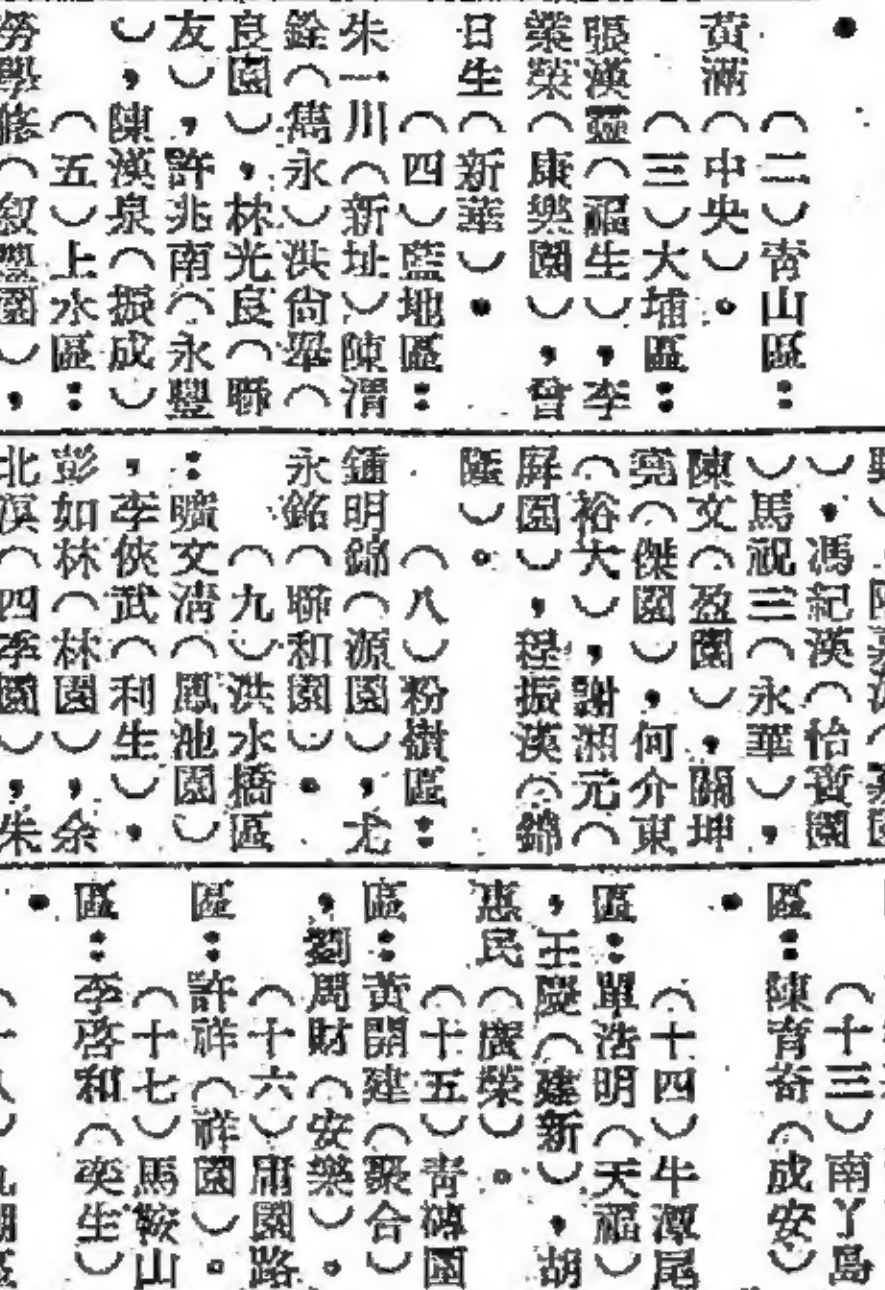 。
（二）青山區：
黃滿（中央）。
（三）大埔區：
張漢靈（福生），李
業榮（康樂園），曾
日生（新華）。
（四）藍地區：
朱一川（新址）陳渭
銓（雋永）洪尙犖（
良園），林光良（聯
友），許兆南（永豐
），陳漢泉（振成）
（五）上水區：
勞學修（叙豐園），
），馮紀漢（怡寶園
）馬祝三（永華），
陳文（盈園），關坤
堯（傑園），何介東
（裕大），謝湘元（
屛園），程振漢（錦
）。
（八）粉嶺區：
鍾明錦（源園），尤
永銘（聯和園）。
（九）洪水橋區
：曠文清（鳳池園）
，李俠武（利生），
彭如林（林園），余
北溟（四季園），朱
（十三）南丫島
區：陳育奇（成安）
。
（十四）牛潭尾
區：單浩明（天福）
，王陵（建新），胡
惠民（廣榮）。
（十五）青磚圍
區：黃開建（聚合）
，劉周財（安樂）。
（十六）甫園路
區：許祥（祥園）。
（十七）馬鞍山
區：李啓和（奕生）
。